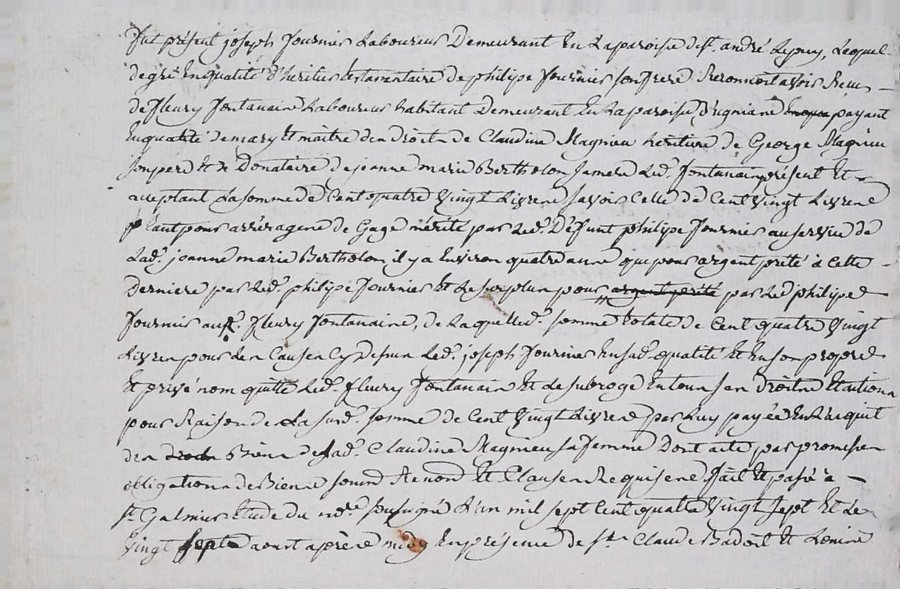 fut présent joseph fournier Laboureur Demeurant En Laparoisse de st. andré Lepuy, Lequel
de gré En qualité d'heritier testamentaire de philipe fournier son frere Reconnoit avoir Reçu
de fleury fontanaire Laboureur habitant Demeurant En Laparoisse payant
En qualité de mary Et maître des Droits de Claudine Magnieu heritiere de George Magnieu
son pere Et de Donataire de jeanne marie Bertholon sa mere Led. fontanaire présent Et
acceptant La somme de Cent quatre vingt Livres savoir Celle de Cent vingt Livres
tant pour arrérages de Gage mérité par Led. Défunt philipe fournier au service de
Lad. jeanne marie Bertholon il y a Environ quatre ans que pour argent prêté à Cette
Derniere par Led. philipe fournier Et Le surplus pour argent prêté par Led philipe
fournier aud. fleury fontanaire, de Laquelle d. somme totale de Cent quatre vingt
Livres pour Les Causes Cy dessus Led. joseph fournier En sad. qualité Et En son propre
Et privé nom quitte Led. fleury fontanaire Et Le subroge En tous ses Droits Et actions
pour Raison de La sud. somme de Cent vingt Livres par Luy payée En L'acquit
des Droits Biens de sad. Claudine Magnieu sa femme Dont acte par promesses
obligations de Biens soumd Renond Et Clauses Requises fait Et passé à
st. Galmier Etude du nore. soussigné L'an mil sept Cent quatre vingt sept Et Le
vingt sept aoust après midy En présence de sr. Claude Badoil Et